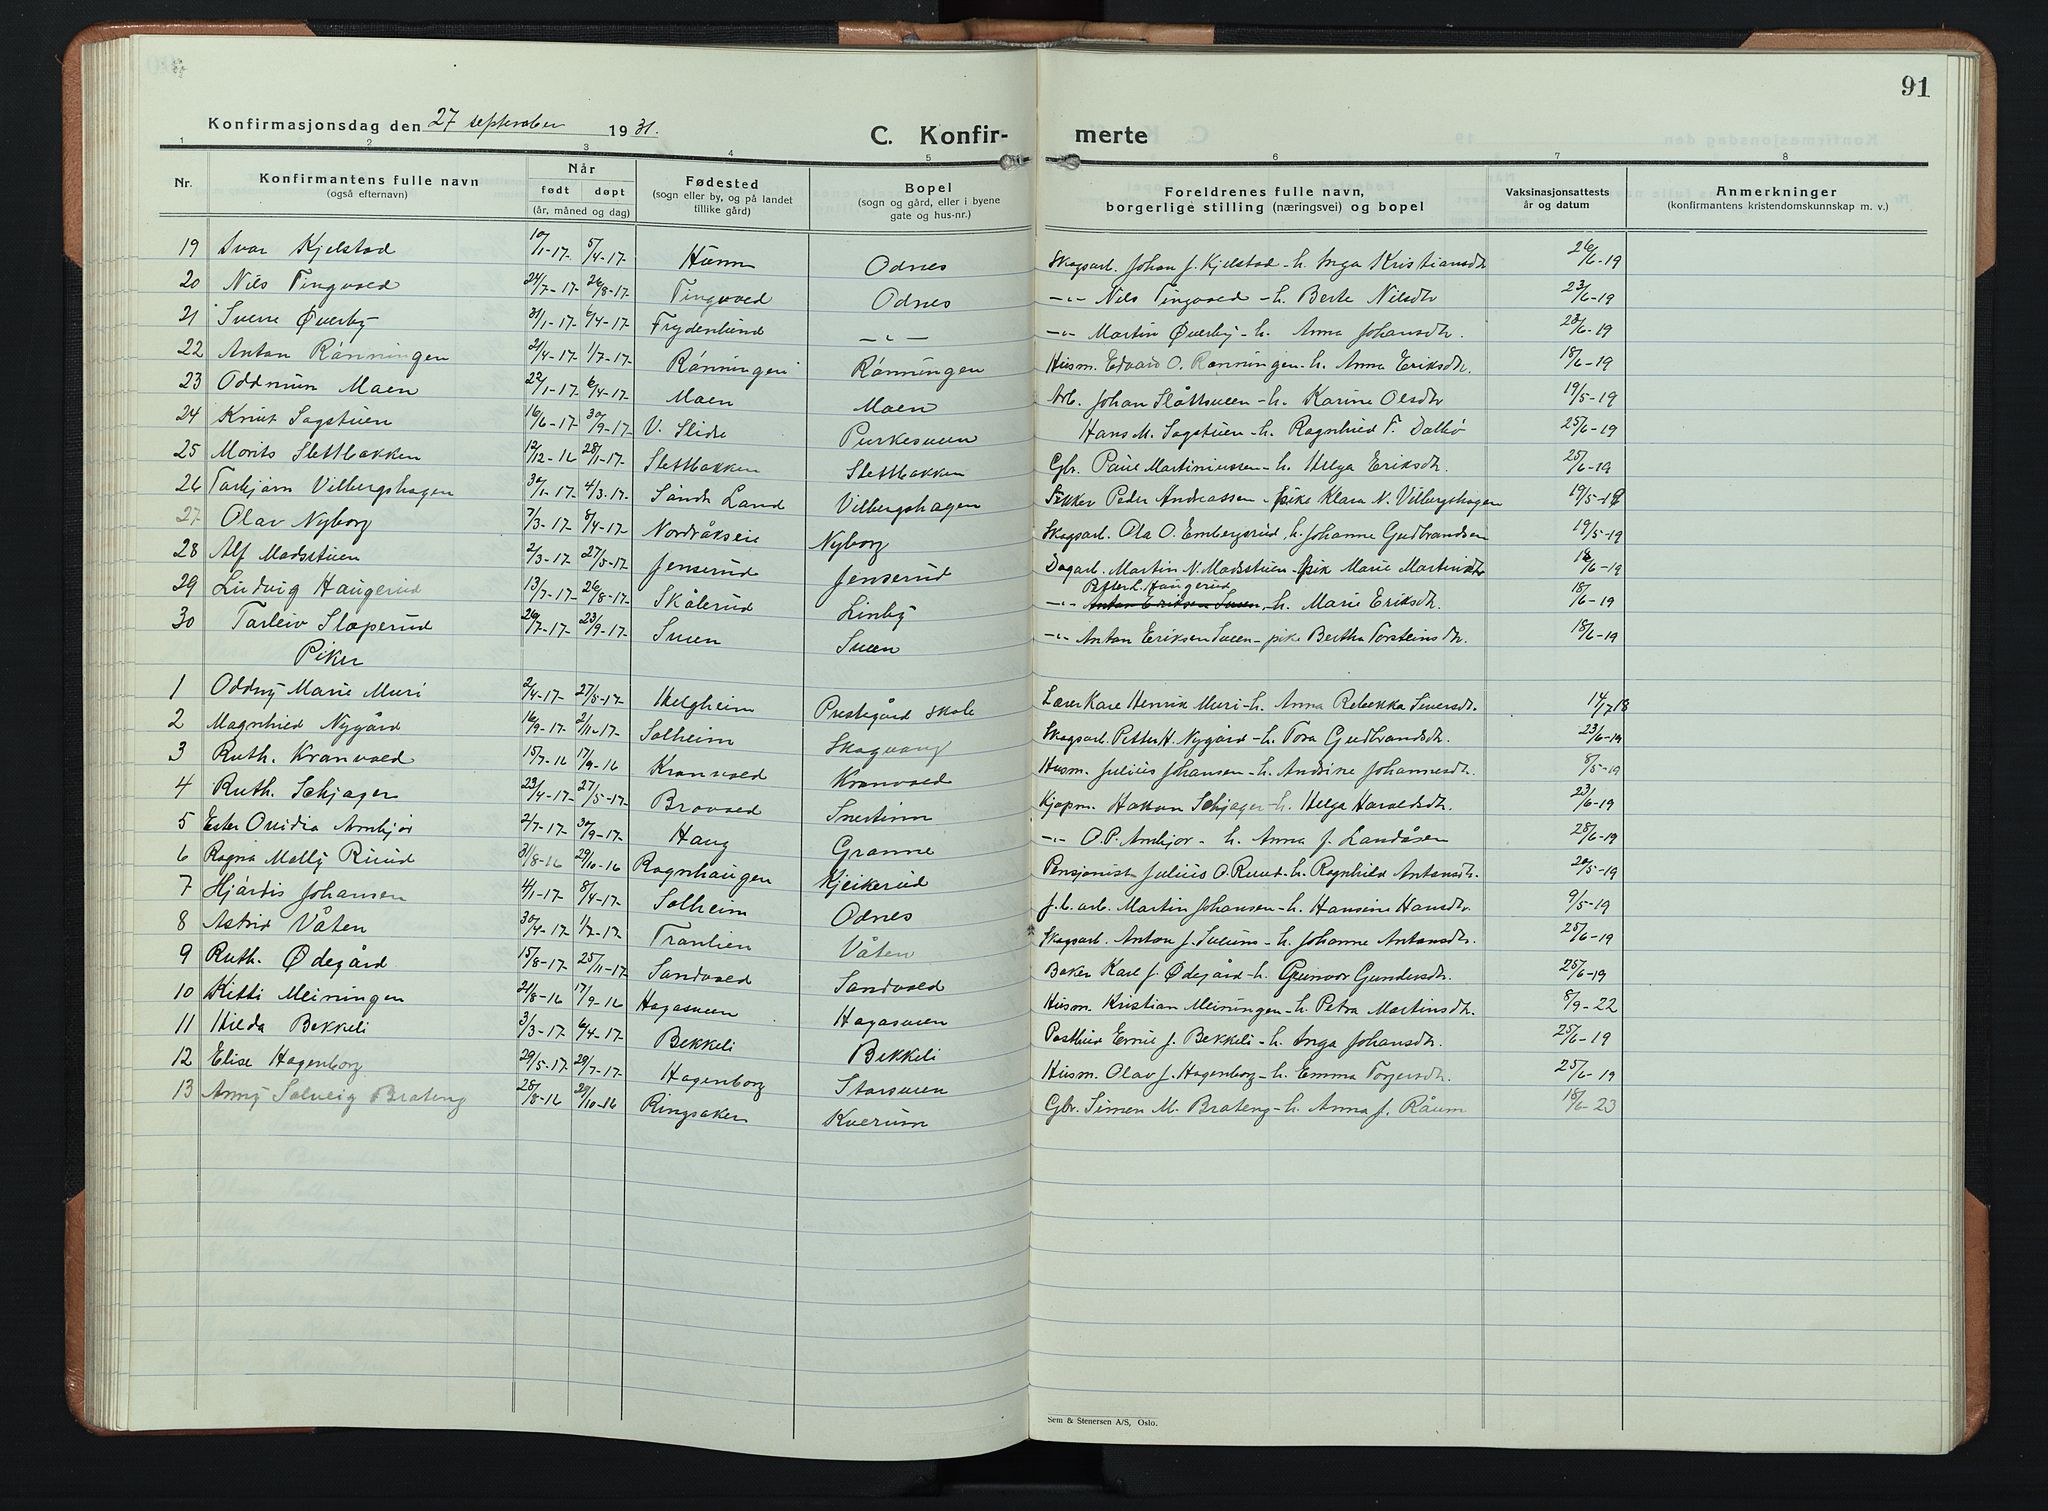 91
Konfirmasjonsdag den 27 september 1931.
C. Konfir- merte
1 2 3 4 5 6 7 8
Nr. Konfirmantens fulle navn (også efternavn) Når født døpt (år, måned og dag) Fødested (sogn eller by, og på landet tillike gård) Bopel (sogn og gård, eller i byene gate og hus-nr.) Foreldrenes fulle navn, borgerlige stilling (næringsvei) og bopel Vaksinasjonsattests år og datum Anmerkninger (konfirmantens kristendomskunnskap m. v.)
19 Ivar Kjelstad 10/1-17 5/4-17 Hunn Odnes Skogsarb. Johan J. Kjelstad - h. Inga Kristiansdtr 26/6-19
20 Nils Tingvold 24/7-17 26/8-17 Tingvold Odnes -"- Nils Tingvold - h. Berte Nilsdtr 23/6-19
21 Sverre Øverby 31/1-17 6/4-17 Frydenlund -"- -"- Martin Øverby - h. Anna Johansdtr. 23/6-19
22 Anton Rønningen 21/4-17 1/7-17 Rønningen Rønningen Husm. Edvard O. Rønningen - h. Anna Eriksdtr. 18/6-19
23 Oddmun Moen 22/1-17 6/4-17 Moen Moen Arb. Johan Slåttsveen - h. Karine Olsdtr 19/5-19
24 Knut Sagstuen 16/6-17 30/9-17 V. Slidre Purkesveen Hans M. Sagstuen - h. Ragnhild T. Dalbø 25/6-19
25 Morits Slettbakken 12/12-16 28/1-17 Slettbakken Slettbakken Gbr. Paul Martiniussen - h. Helga Eriksdtr. 25/6-19
26 Torbjørn Vilbergshagen 30/1-17 4/3-17 Søndre Land Vilbergshagen Snekker Peder Andreassen - pike Klara N. Vilbergshagen 19/5-19
27 Olav Nyborg 7/3-17 8/4-17 Nordråkseie Nyborg Skogsarb. Ola O. Embergsrud, h. Johanne Gudbrandsen 19/5-19
28 Alf Madsstuen 2/3-17 27/5-17 Jenserud Jenserud Dagarb. Martin N. Madsstuen - pik Marie Martinsdtr 18/6-19
29 Ludvig Haugerud 13/7-17 26/8-17 Skålerud Linby -"- Petter L. Haugerud Anton Eriksen Sveen - h. Marie Eriksdtr. 18/6-19
30 Torleiv Slåperud 26/7-17 23/9-17 Sveen Sveen -"- Anton Eriksen Sveen - pike Bertha Torsteinsdtr. 18/6-19
Piker
1 Oddny Marie Muri 2/4-17 27/5-17 Helgheim Prestegård skole Lærer Kare Henrik Muri - h. Anna Rebekka Siversdtr. 14/1718
2 Magnhild Nygård 16/9-17 2/11-17 Solheim Skogvang Skogsarb. Petter H. Nygård - h. Tora Gudbrandsdtr. 23/6-19
3 Ruth. Kronvold 15/7-16 17/9-16 Kronvold Kronvold Husm. Julius Johansen - h. Andrine Johannesdtr. 8/5-19
4 Ruth. Schjager 23/4-17 27/5-17 Brovold Snertinn Kjøpm. Håkon Schjager - h. Helga Haraldsdtr. 23/6-19
5 Ester Ovidia Arnhjor 2/7-17 30/9-17 Haug Granne -"- O.P. Arnhjor - h. Anna J. Landåsen 28/6-19
6 Ragna Molly Ruud 31/8-16 29/10-16 Rognhaugen Kjeikerud Pensjonist Julius O. Ruud - h. Ragnhild Antonsdtr. 20/5-19
7 Hjørdis Johansen 4/1-17 8/4-17 Solheim Odnes J.b. arb. Martin Johansen - h. Hansine Hansdtr 9/5-19
8 Astrid Våten 30/4-17 1/7-17 Tranlien Våten Skogsarb. Anton J. Sveum - h. Johanne Antonsdtr. 25/6-19
9 Ruth. Ødegård 15/8-17 25/11-17 Sandvold Sandvold Baker Karl J. Ødegård - h. Gunvor Gundersdtr. 25/6-19
10 Kitti Meiningen 21/8-16 17/9-16 Hagasveen Hagasveen Husm. Kristian Meiningen - h. Petra Martinsdtr. 8/9-22
11 Hilda Bekkeli 3/3-17 6/4-17 Bekkeli Bekkeli Postbud Ernie J. Bekkeli - h. Inga Johansdtr. 25/6-19
12 Elise Hagenborg 29/5-17 29/7-17 Hagenborg Storsveen Husm. Olav J. Hagenborg - h. Emma Torgersdtr. 25/6-19
13 Anny Solveig Bråteng 28/8-16 29/10-16 Ringsaker Kverum Gbr. Simen M. Bråteng - h. Anna J. Råum 18/6-23
Sem & Stenersen A/S, Oslo.